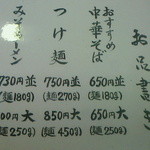 お品書き
おすすめ
中華そば
650円 並
(麺180g)
650円 大
(麺250g)
つけ麺
750円 並
(麺270g)
850円 大
(麺450g)
730円 並
(麺180g)
大